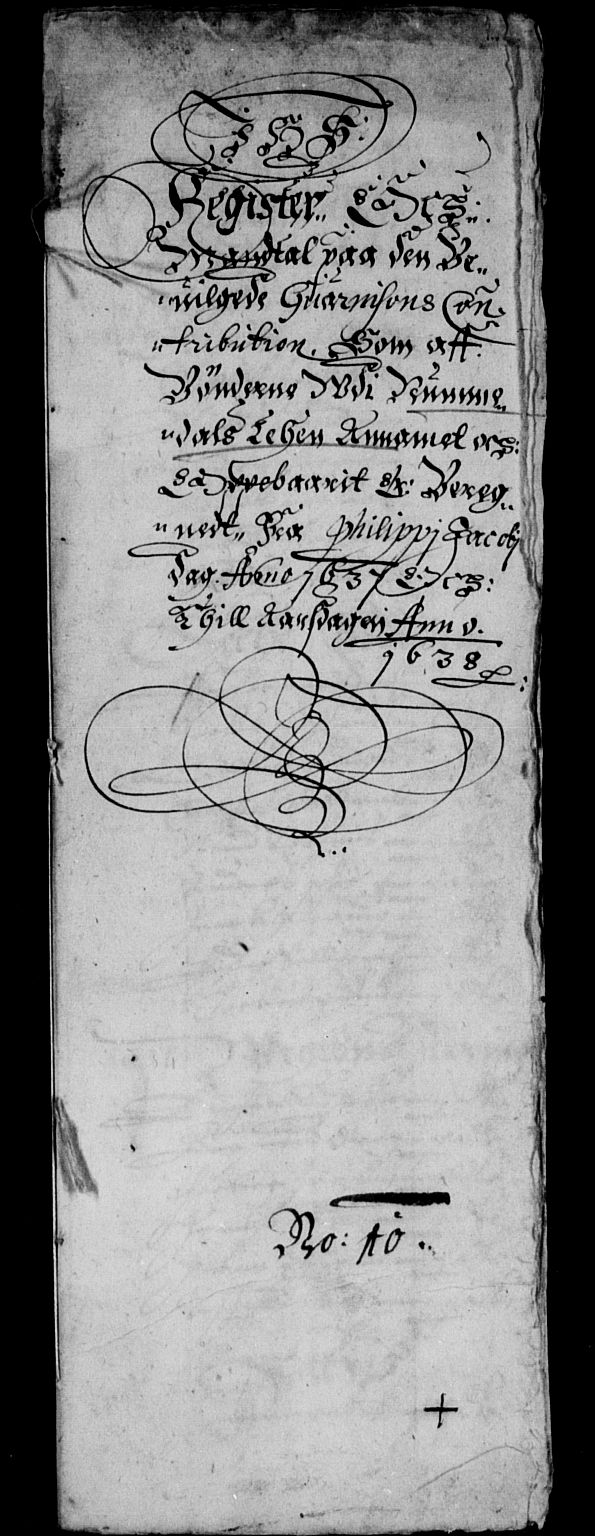 J H S:
Register Och
Mandtal paa den Be-
uilgede Guarnisons Con-
tribution. Som aff
Bönderne Wdi Numme-
dals Lehen Annamet och:
Oppebaarit Er: Bereg-
nedt. Fra Philippj Jacobj
dag. Anno 1637 Och:
Thill Aarsdagen Anno.
1638
No: 10.
+